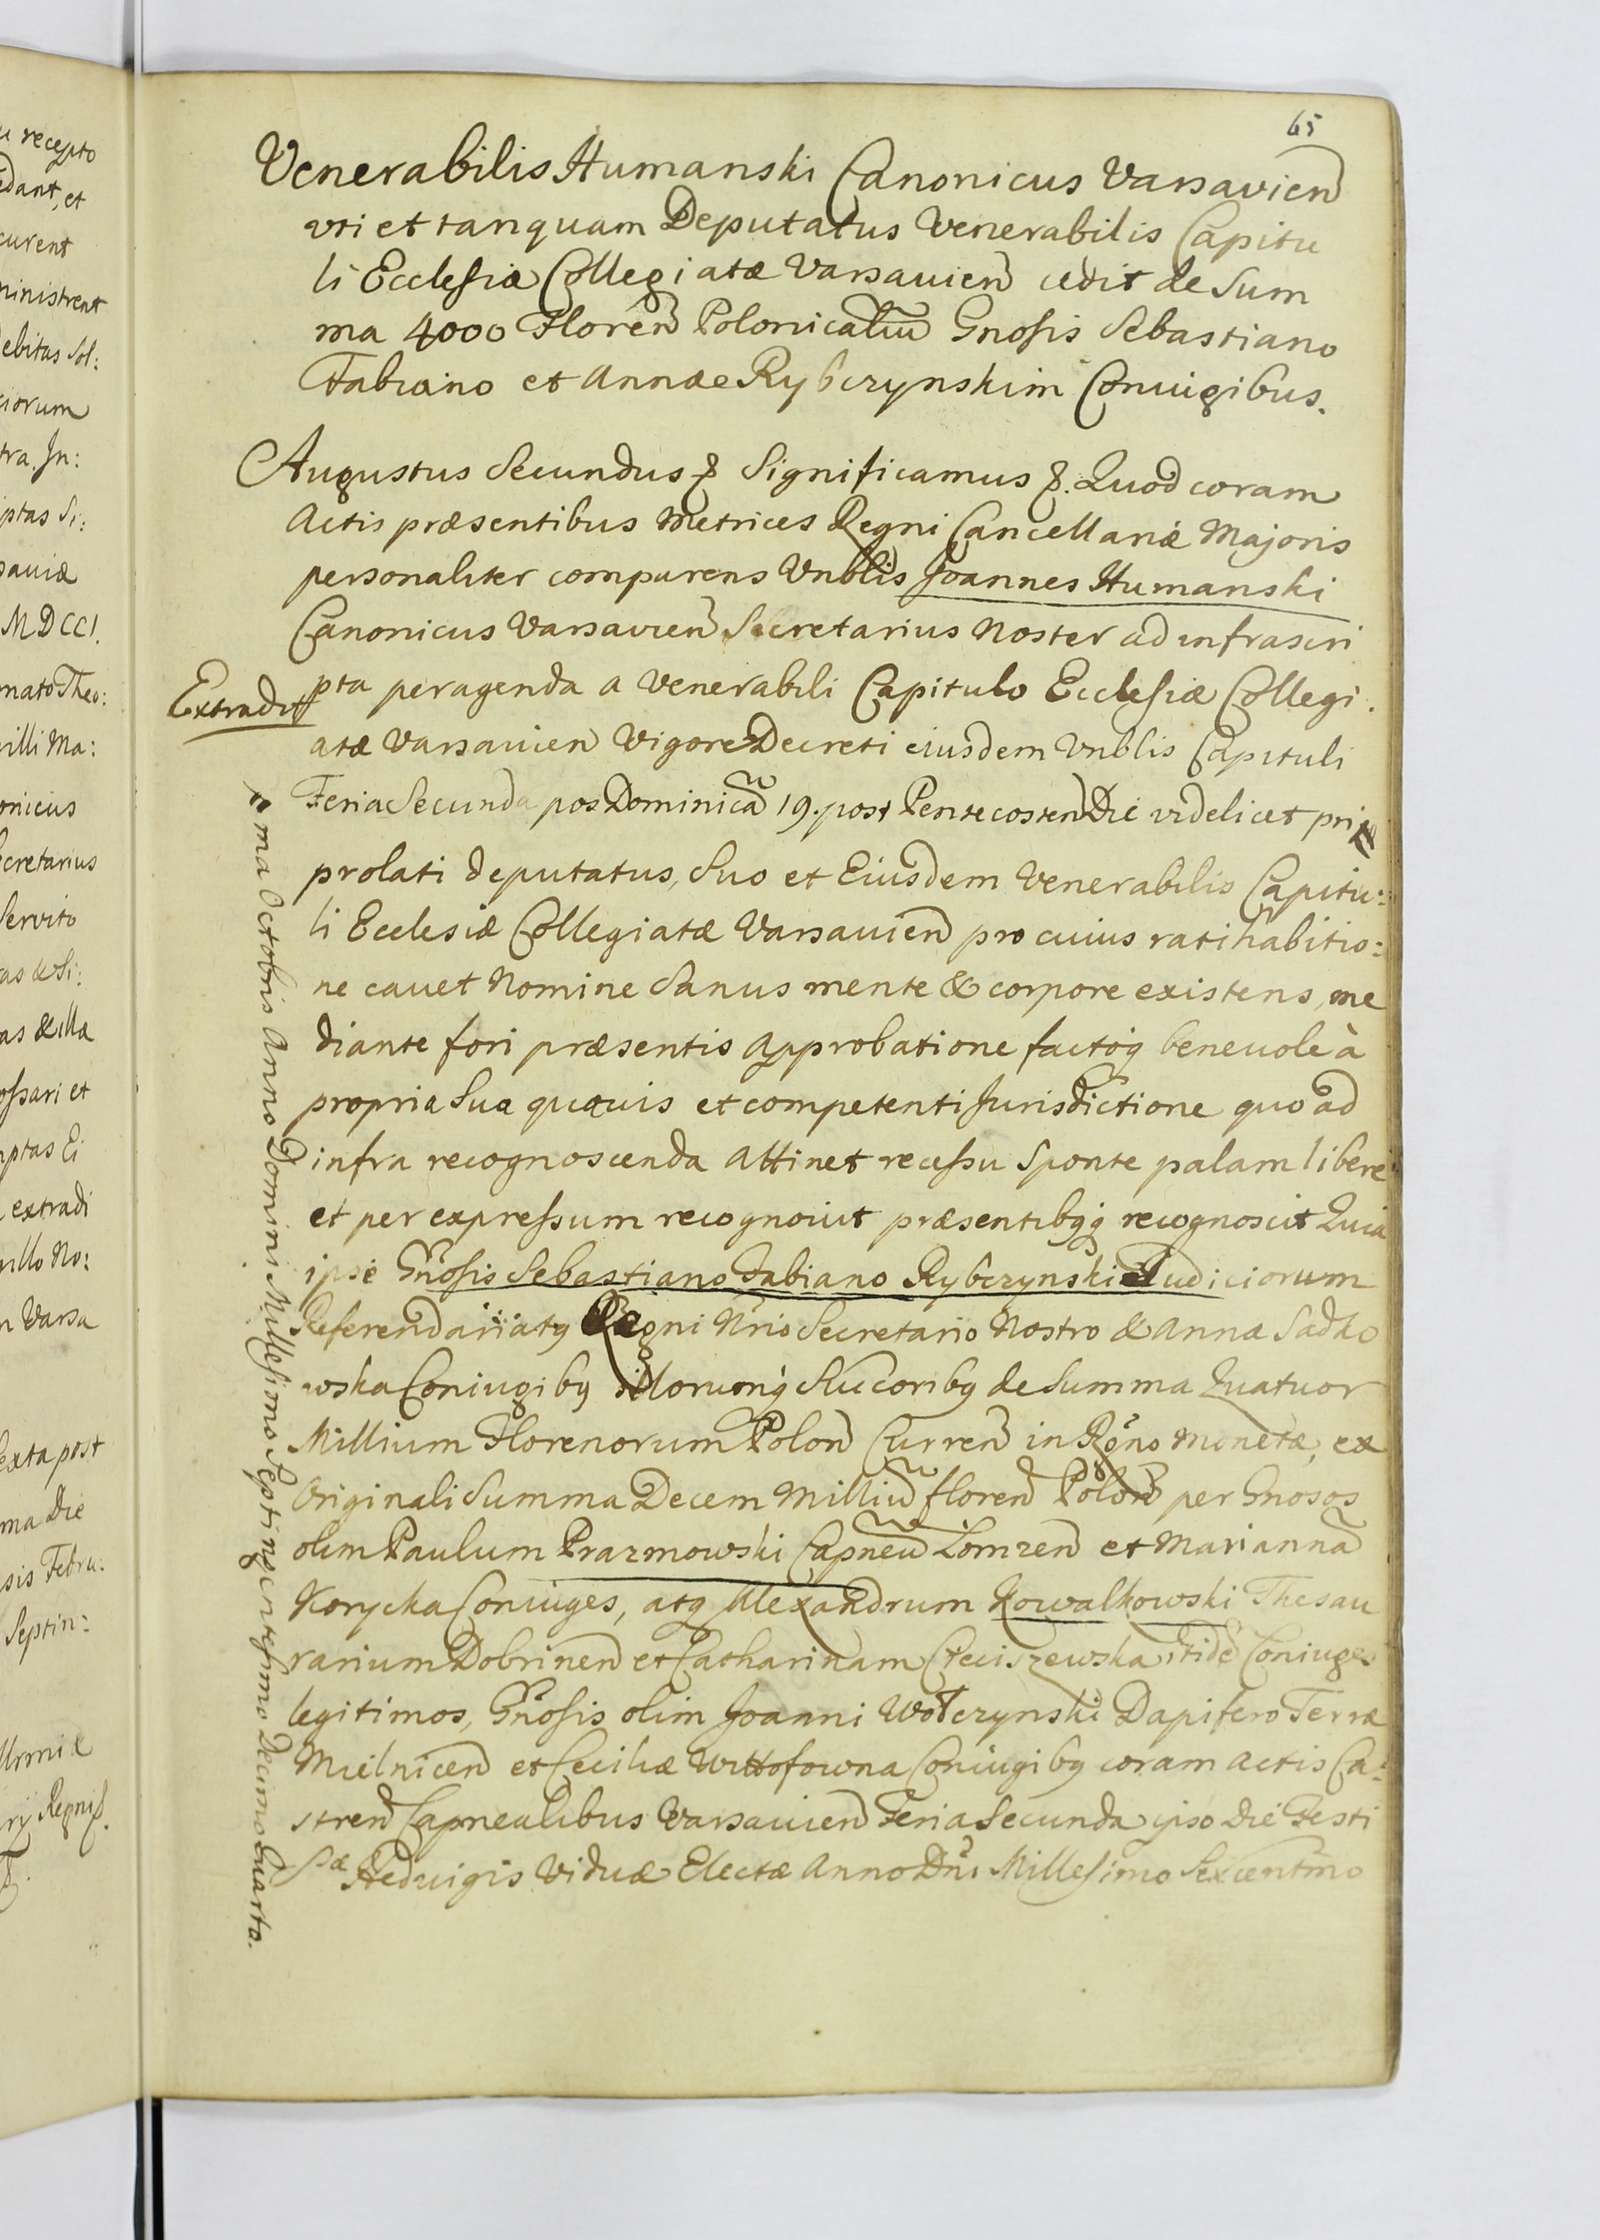 u recepto
edant, et
curent
ministrent
debitas Sol:
ciorum
tra. In:
iptas Si:
saviæ
MDCCI.
mato Theo:
villi Ma:
onicus
ecretarius
Servito
as & Si:
as & illa
ossari et
nptas Ei
extradi
nullo No:
m Varsa
Sexta post
ma Die
sis Febru:
Septin:
65
Venerabilis Humanski Canonicus Varsavien
uti et tanquam Deputatus Venerabilis Capitu
li Ecclesiæ Collegiatæ Varsauien cedit de Sum
ma 4000 Floren Polonicaliu Gnosis Sebastiano
Fabiano et Annae Rybczynskim Coniugibus.
Augustus Secundus & Significamus &. Quod coram
Actis præsentibus Metrices Regni Cancellariæ Majoris
personaliter comparens Vnblis Joannes Humanski
Canonicus Varsavien Secretarius Noster ad infrascri
Extradit
pta peragenda a Venerabili Capitulo Ecclesiæ Collegi:
atæ Varsauien Vigore Decreti eiusdem Vnblis Capituli
Feria Secunda pos Dominica 19. post Pentecosten Die videlicet pri
ma Octobris Anno Domini Millesimo Septingentesimo Decimo Quarto.
prolati deputatus, Suo et Eiusdem Venerabilis Capitu:
li Ecclesiæ Collegiatæ Varsauien pro cuius ratihabitio:
ne cauet Nomine Sanus mente & corpore existens, me
diante fori præsentis Approbatione factoq benevole à
propria Sua quavis et competenti Jurisdictione quo ad
infra recognoscenda Attinet recessu Sponte palam libere
et per expressum recognovit præsentibqq recognoscit Quia
ipse Gnosis Sebastiano Fabiano Rybczynski Iudiciorum
Referendariiatq Regni Nrio Secretario Nostro & Anna Sadko
wska Coniugibq illorumq Succoribq de Summa Quatuor
Millium Florenorum Polon Curren in Rgno Monetæ, ex
Originali Summa Decem Milliu floren Polon per Gnosos
olim Paulum Prazmowski Capneu Lomzen et Marianna
Korycka Coniuges, atq Alexandrum Kowalkowski Thesau
rarium Dobrinen et Catharinam Cieciszewska itide Coniuges
legitimos, Gnosis olim Joanni Wołczynski Dapifero Terræ
Mielnicen et Ceciliæ Wittofowna Coniugibq coram Actis Ca:
stren Capnealibus Varsauien Feria Secunda ipso Die Festi
Sæ Hedvigis Viduæ Electæ Anno Dni Millesimo Sexcentmo